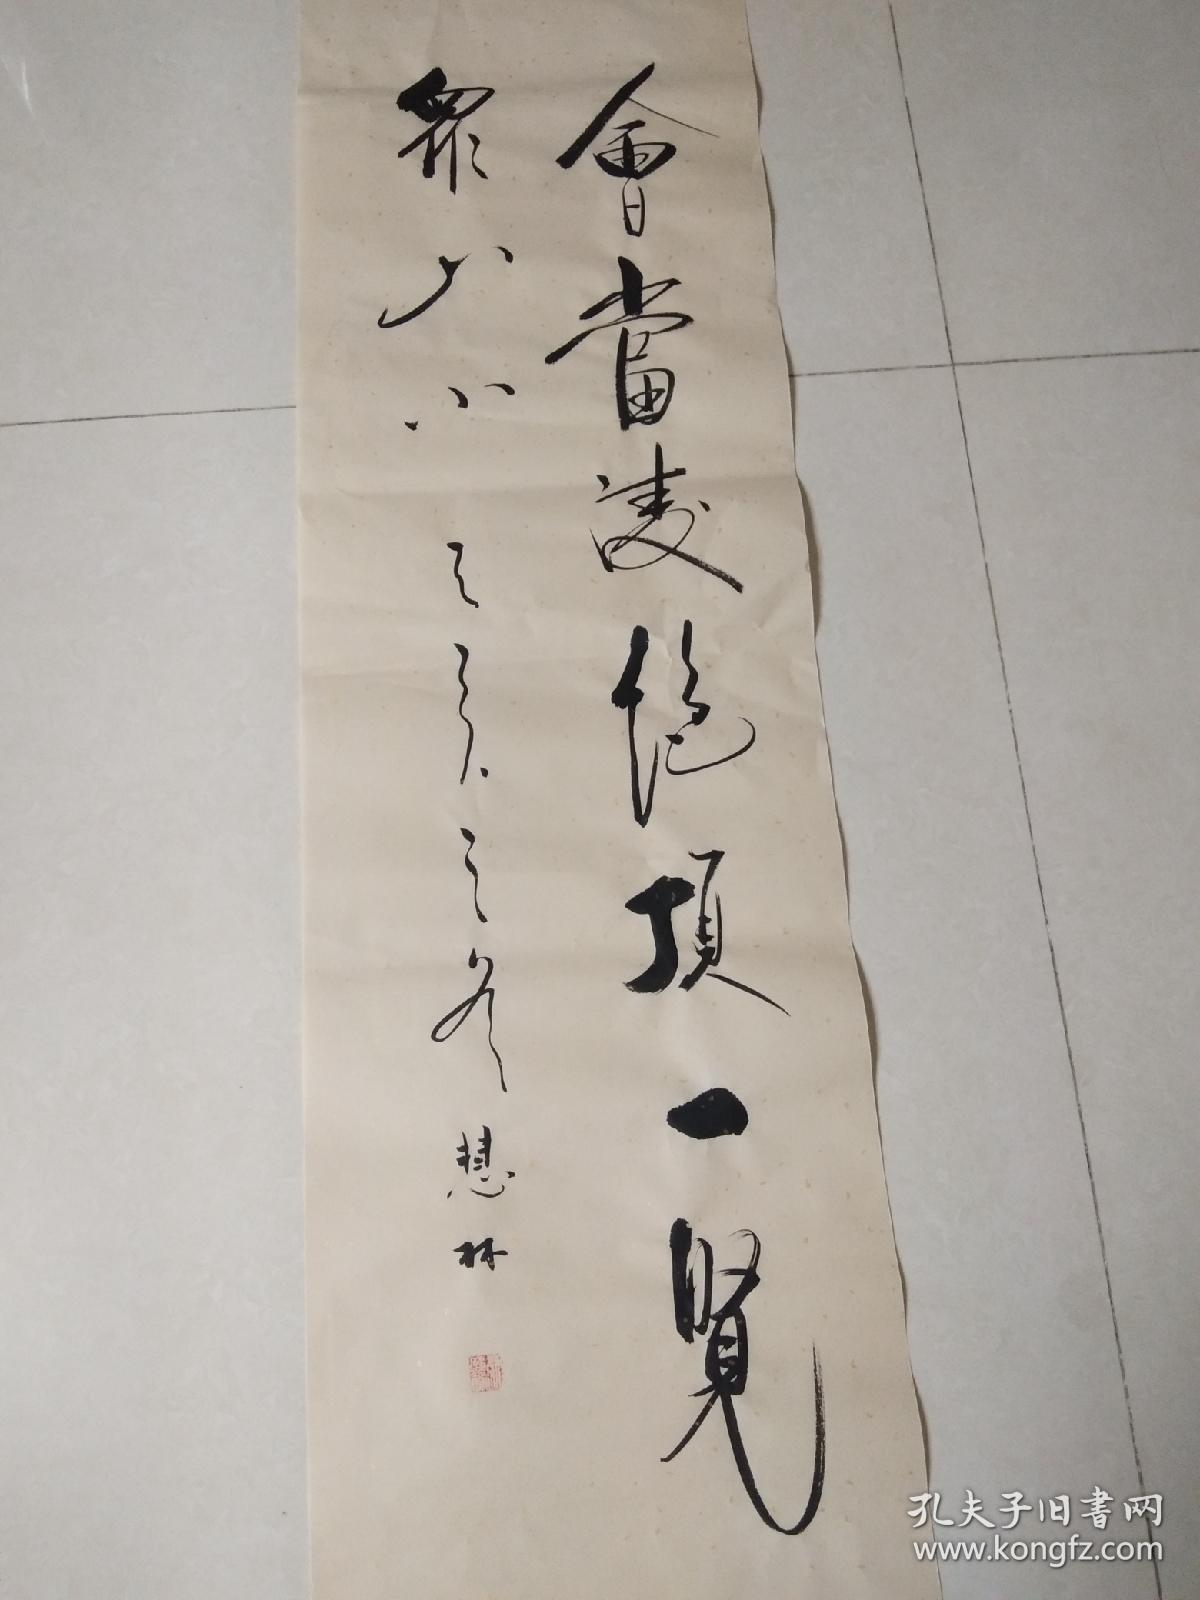 會當凌絕頂一覽
眾山小
慧林
孔夫子旧书网
www.kongfz.com